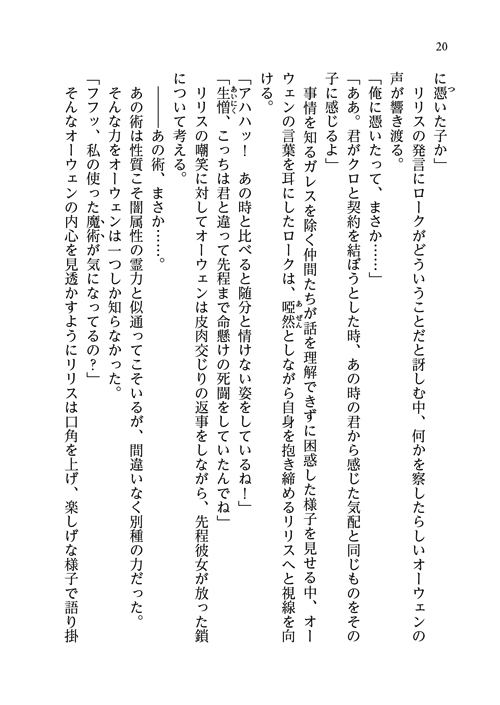 20
に憑いた子か」
　リリスの発言にロークがどういうことだと訝しむ中、何かを察したらしいオーウェンの
声が響き渡る。
「俺に憑いたって、まさか……」
「ああ。君がクロと契約を結ぼうとした時、あの時の君から感じた気配と同じものをその
子に感じるよ」
　事情を知るガレスを除く仲間たちが話を理解できずに困惑した様子を見せる中、オー
ウェンの言葉を耳にしたロークは、啞然としながら自身を抱き締めるリリスへと視線を向
ける。
「アハハッ！　あの時と比べると随分と情けない姿をしているね！」
「生憎、こっちは君と違って先程まで命懸けの死闘をしていたんでね」
　リリスの嘲笑に対してオーウェンは皮肉交じりの返事をしながら、先程彼女が放った鎖
について考える。
　――あの術、まさか……。
　あの術は性質こそ闇属性の霊力と似通ってこそいるが、間違いなく別種の力だった。
　そんな力をオーウェンは一つしか知らなかった。
「フフッ、私の使った魔術が気になってるの？」
　そんなオーウェンの内心を見透かすようにリリスは口角を上げ、楽しげな様子で語り掛